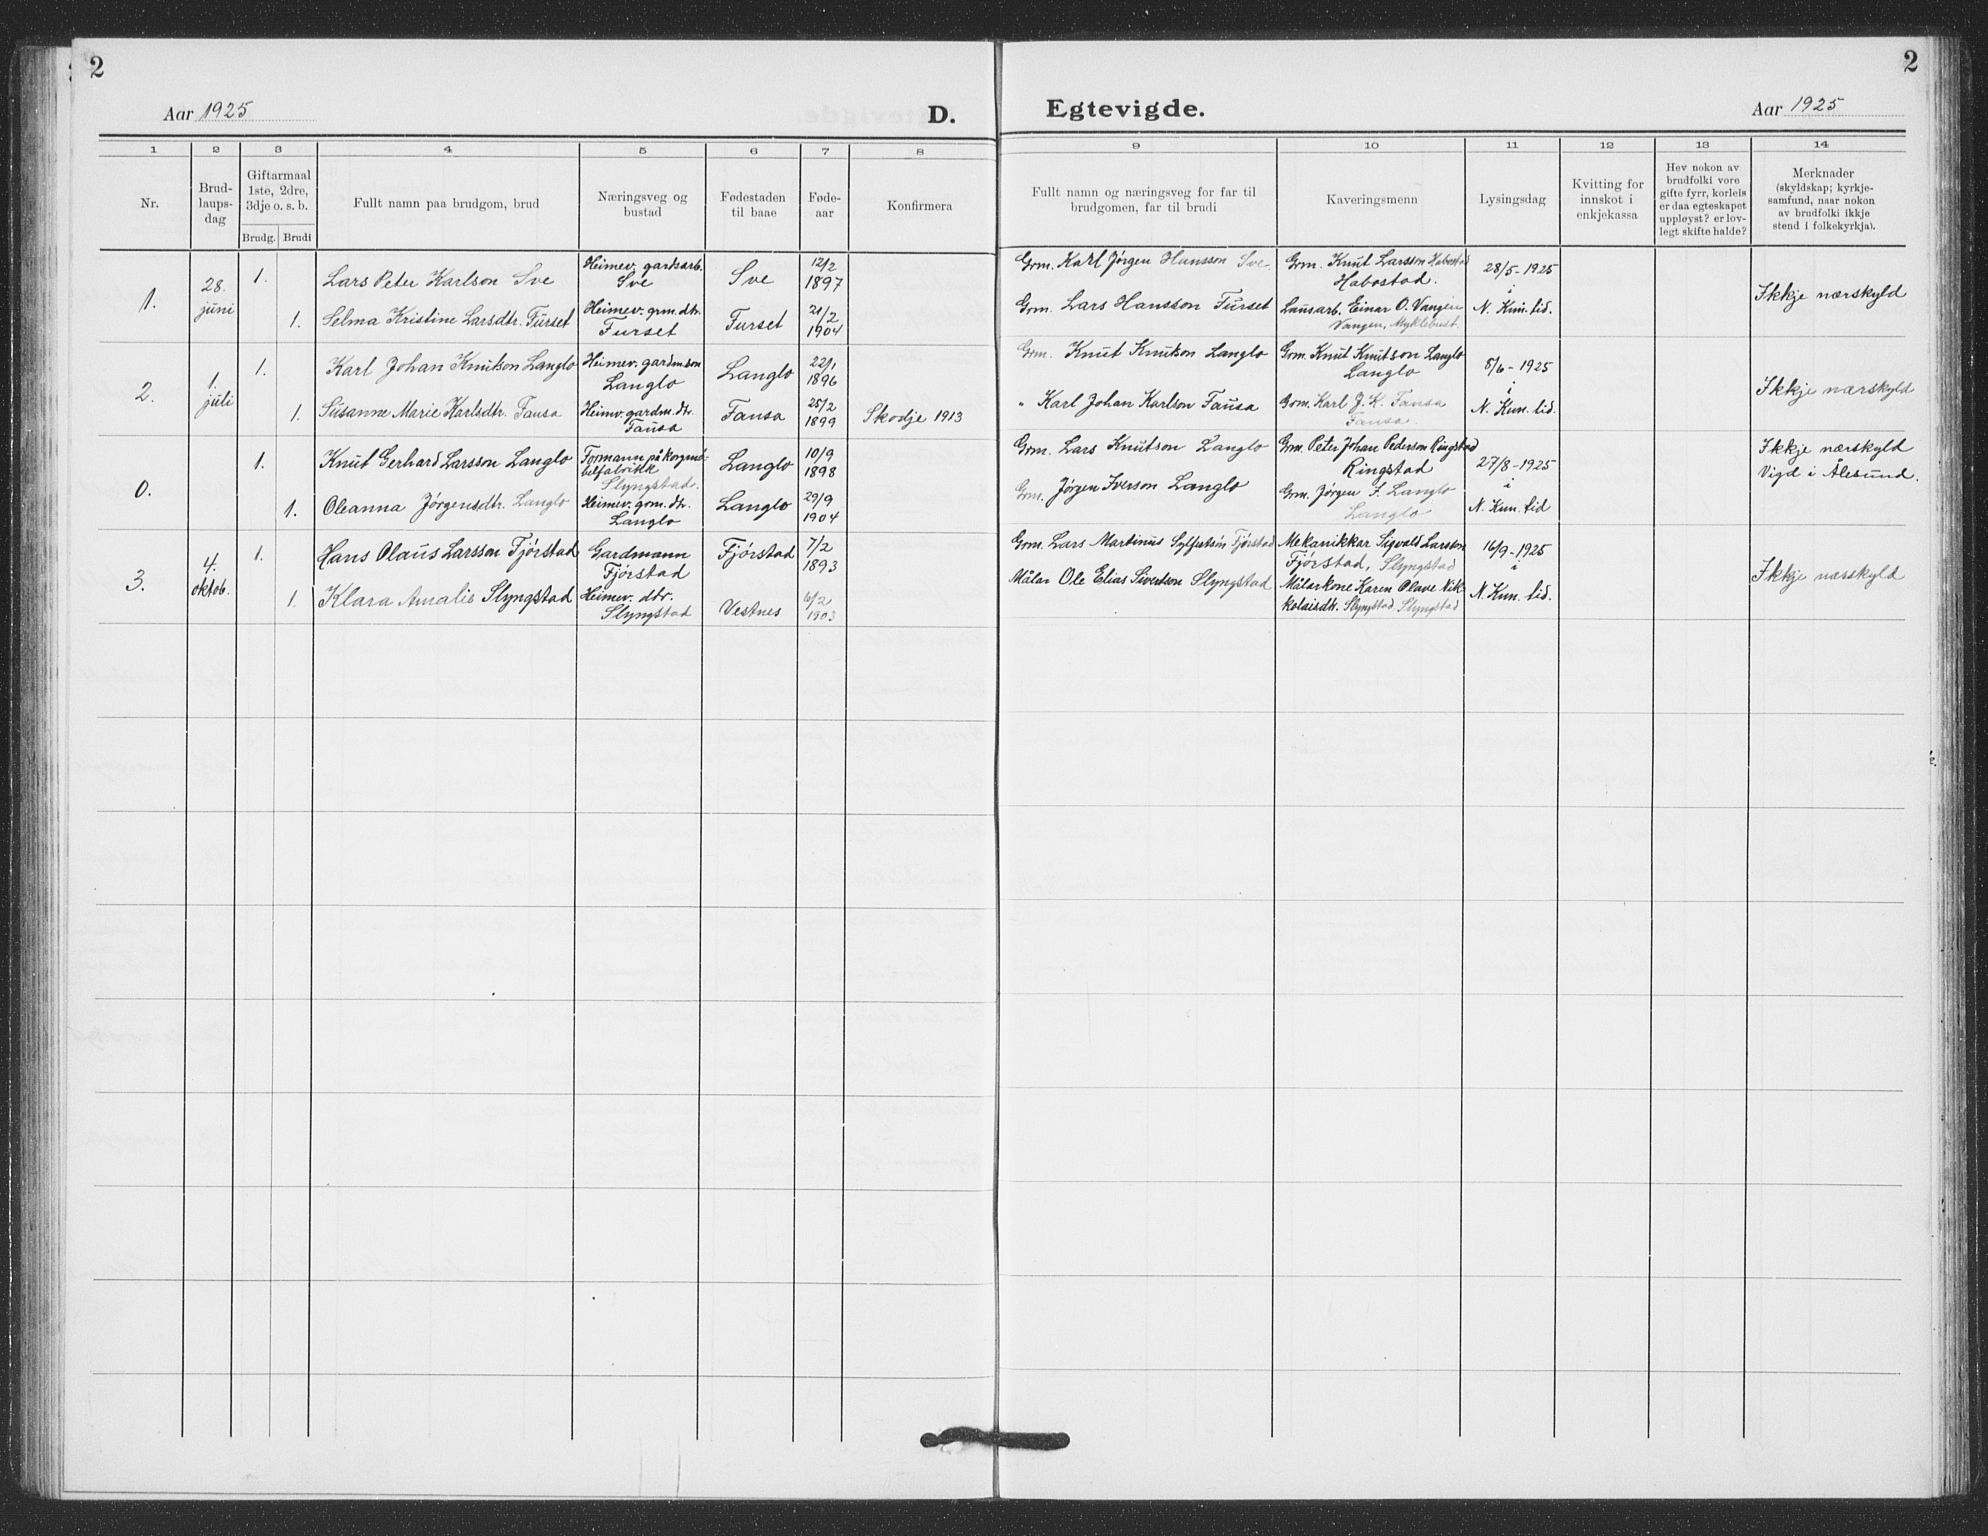 2
2
Aar 1925
D.
Egtevigde.
Aar 1925
1 2 3 4 5 6 7 8 9 10 11 12 13 14
Nr.
Brud-
laups-
dag
Giftarmaal
1ste, 2dre,
3dje o. s. b.
Brudg. Brudi
Fullt namn paa brudgom, brud
Næringsveg og
bustad
Fødestaden
til baae
Føde-
aar
Konfirmera
Fullt namn og næringsveg for far til
brudgomen, far til brudi
Kaveringsmenn
Lysingsdag
Kvitting for
innskot i
enkjekassa
Hev nokon av
brudfolki vore
gifte fyrr, korleis
er daa egteskapet
uppløyst? er lov-
legt skifte halde?
Merknader
(skyldskap; kyrkje-
samfund, naar nokon
av brudfolki ikkje
stend i folkekyrkja).
1.
28.
juni
1.
Lars Peter Karlson Sve
Heimev. gardsarb.
Sve
Sve
12/2
1897
Grm. Karl Jørgen Hansson Sve
Grm. Knut Larsson Habostad
Habostad.
28/5 - 1925
i
N. Kun. tid.
Ikkje nærskyld
1.
Selma Kristine Larsdtr. Furset
Heimev. grm. dtr.
Furset
Furset
21/2
1904
Grm. Lars Hansson Furset
Lausarb. Einar O. Vangen
Vangen, Myklebust.
2.
1.
juli
1.
Karl Johan Knutson Langlo
Heimev. gardmson
Langlo
Langlo
22/1
1896
Grm. Knut Knutson Langlo
Grm. Knut Knutson Langlo
Langlo
8/6 - 1925
i
N. Kun. tid.
Ikkje nærskyld
1.
Susanne Marie Karlsdtr. Fausa
Heimv. gardm. dtr.
Fausa
Fausa
25/2
1899
Skodje 1913
" Karl Johan Karlson Fausa
Grm. Karl J. K. Fausa
Fausa.
0.
1.
Knut Gerhard Larsson Langlo
Formann på korgmø-
belfabrikk
Slyngstad.
Langlo
10/9
1898
Grm. Lars Knutson Langlo
Grm. Peter Johan Pederson Ringstad
Ringstad
27/8 - 1925
i
N. Kun. tid
Ikkje nærskyld
Vigd i Ålesund.
1.
Oleanna Jørgensdtr. Langlo
Heimev. grm. dtr.
Langlo
Langlo
29/9
1904
Grm. Jørgen Iverson Langlo
Grm. Jørgen I. Langlo
Langlo
3.
4.
oktob.
1.
Hans Olaus Larsson Fjørstad
Gardmann
Fjørstad
Fjørstad
7/2
1893
Grm. Lars Martinus Fjørstad
Mekanikkar Sigvald Larsson
Fjørstad, Slyngstad
16/9 - 1925
i
N. Kun. tid.
Ikkje nærskyld
1.
Klara Amalie Slyngstad
Heimev. dtr.
Slyngstad
Vestnes
6/2
1903
Målar Ole Elias Sivertson Slyngstad
Målarkone Karen Olave Nik-
kolaisdtr. Slyngstad Slyngstad